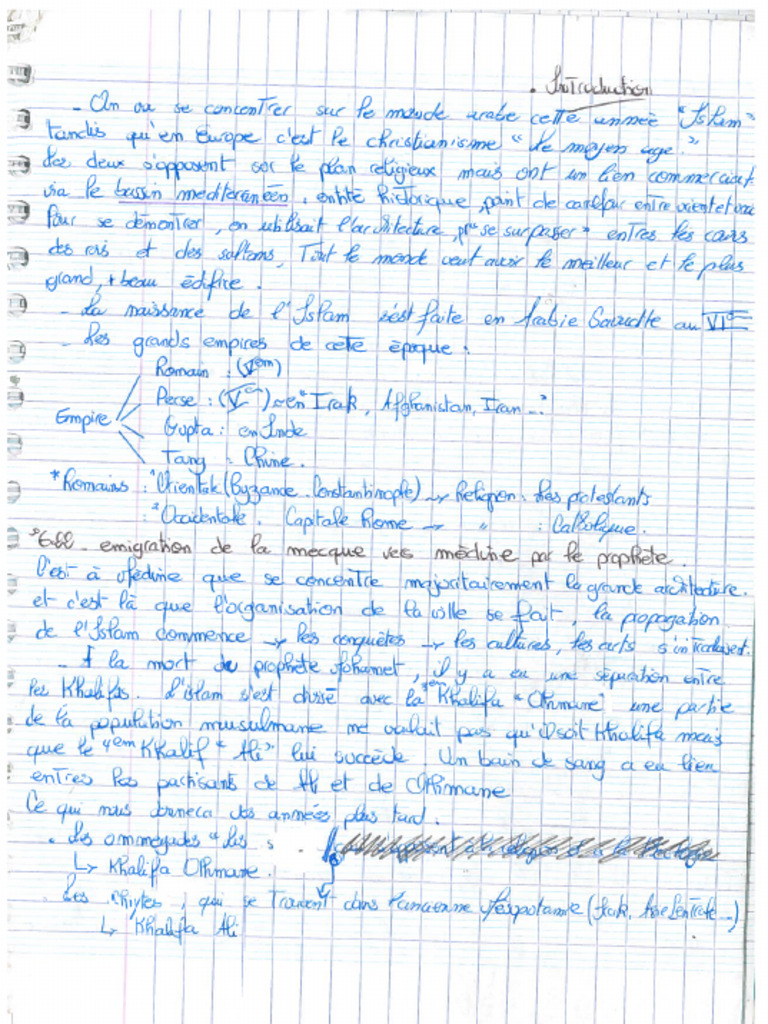 . Introduction
- On va se concentrer sur le monde arabe cette année "Islam"
tandis qu'en Europe c'est le christianisme "le moyen age."
Les deux s'opposent sur le plan religieux mais ont un lien commerciaux
via le bassin mediteranéen, entité historique, point de carefour entre orient et occi
Pour se démontrer, on utilisait l'architecture, pr "se surpasser" entres les cours
des rois et des saltans, Tout le monde veut avoir le meilleur et le plus
grand, + beau édifice.
- La naissance de l'Islam s'est faite en Arabie Saoudite au VIe
- Les grands empires de cette époque :
Romain : (Vem)
Perse : (Vem) en "Irak, Afghanistan, Iran ..."
Empire
Gupta : en Inde
Tang : Chine.
*Romains : 1 Orientale (Byzance. Constantinople) → Religion : Les protestants
: 2 Occidentale. Capitale Rome → " : Catholique.
*622. emigration de la mecque vers médine par le prophète.
C'est à Médine que se concentre majoritairement la grande architecture.
et c'est là que l'organisation de la ville se fait, la propagation
de l'Islam commence → les conquêtes → les cultures, les arts s'introduisent.
- A la mort du prophète Mohamet, il y a eu une séparation entre
les Khalifas. L'islam s'est divisé avec la 3em Khalifa "Othmane" une partie
de la population musulmane ne voulait pas qu'il soit Khalifa mais
que le 4em Khalif "Ali" lui succède. Un bain de sang a eu lieu
entres les partisants de Ali et de Othmane
Ce qui nous donnera des années plus tard :
. Les ommeyades "les s
↳ Khalifa Othmane.
. Les chiytes, qui se trouvent dans l'ancienne Mésopotamie (Irak, Asie Centrale ...)
↳ Khalifa Ali